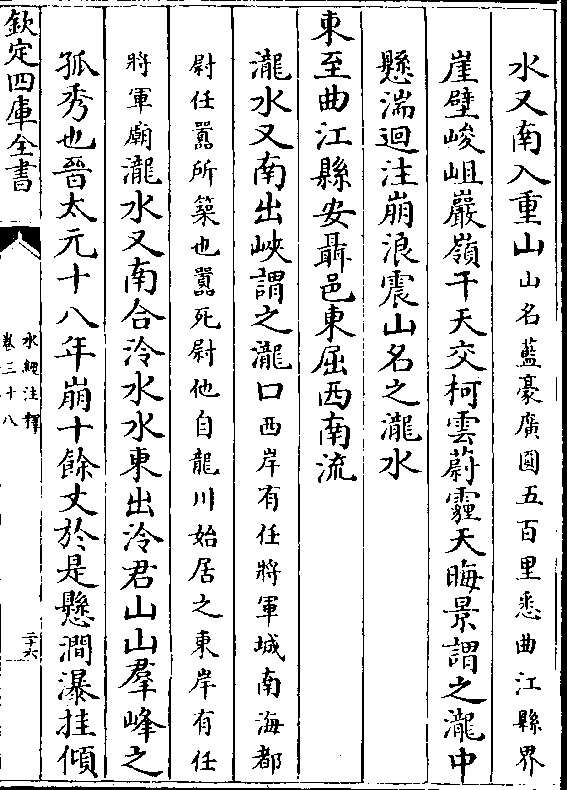 水又南入重山山名藍豪廣圓五百里悉曲江縣界
崖壁峻岨巖嶺干天交柯雲蔚霾天晦景謂之瀧中
懸湍迴注崩浪震山名之瀧水
東至曲江縣安聶邑東屈西南流
瀧水又南出峽謂之瀧口西岸有任將軍城南海都
尉任囂所築也囂死尉他自龍川始居之東岸有任
將軍廟瀧水又南合泠水水東出泠君山山羣峰之
孤秀也晉太元十八年崩十餘丈於是懸澗瀑挂傾
欽定四庫全書
水經注釋
卷三十八
二十六